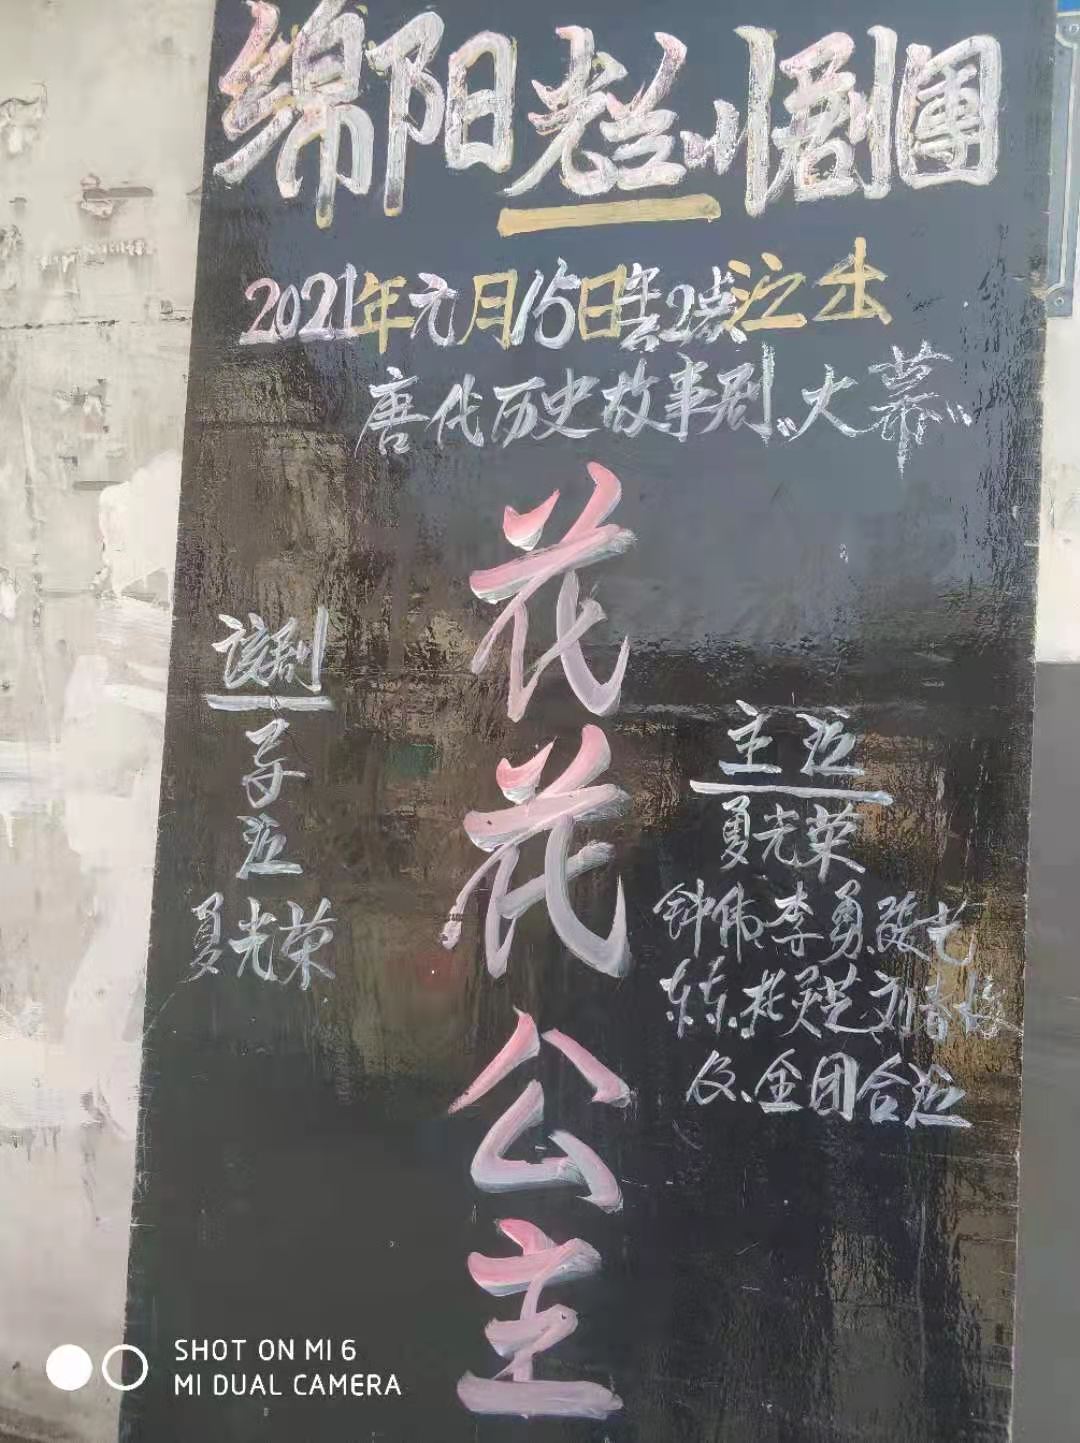 绵阳老兰川剧團
2021年元月15日午2点演出
唐代历史故事剧、大幕
花花公主
该剧
导演
夏光荣
主演
夏光荣
钟伟、李勇、张艺
东东、杜灵芝、刘春梅
及、全团合演
SHOT ON MI 6
MI DUAL CAMERA